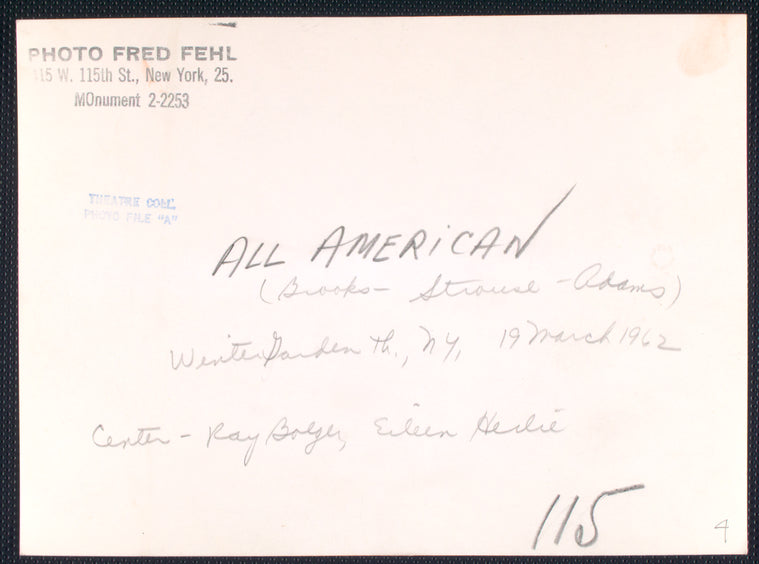 PHOTO FRED FEHL
115 W. 115th St., New York, 25.
MOnument 2-2253
THEATRE COLL.
PHOTO FILE "A"
ALL AMERICAN
(Brooks - Strouse - Adams)
Winter Garden Th., NY, 19 March 1962
Center - Ray Bolger, Eileen Herlie
115
4